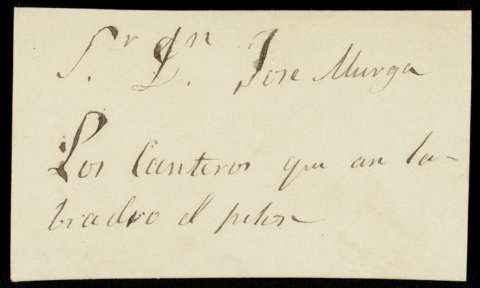 S.r D.n Jose Murga
Los Canteros que an la-
bradro el pilon